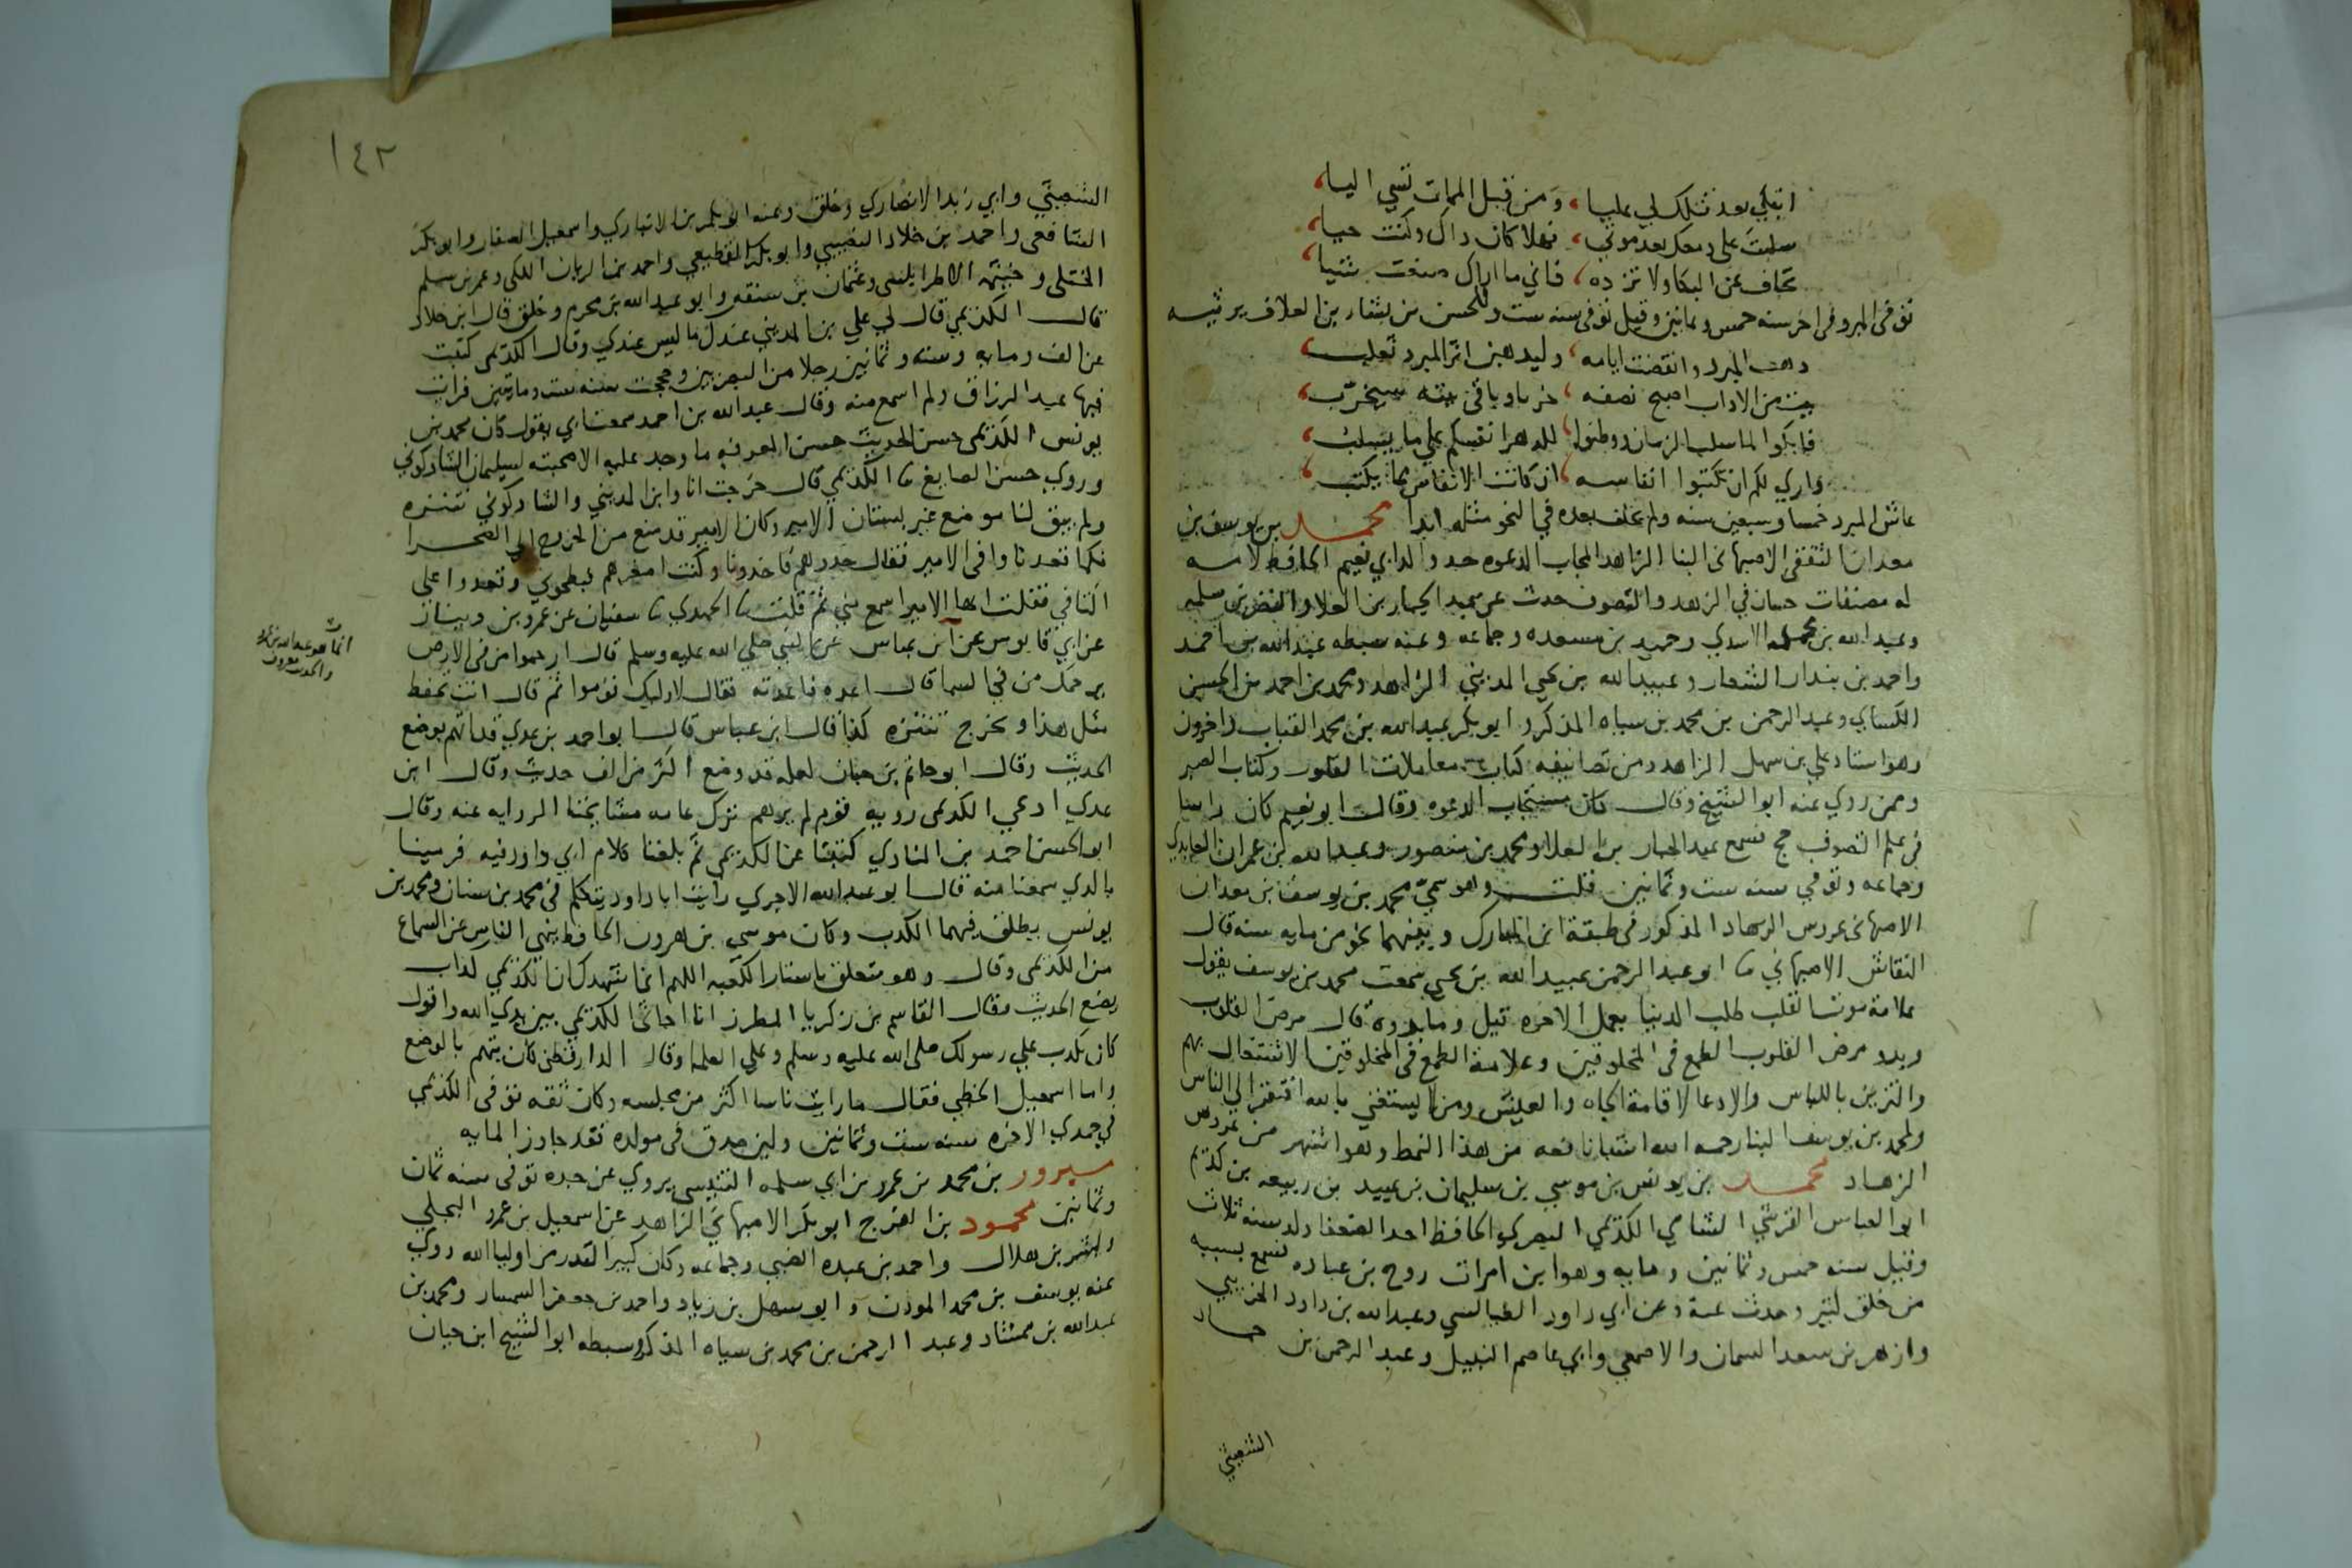 اتبكي بعد قتلك لي عليا ، ومن قبل الممات تسي اليا ،
سكبت على دمعك بعد موتي ، فهلا كان ذاك وكنت حيا ،
تجاف عن البكا ولا تزده ، فاني ما اراك صنعت شيا ،
توفى المبرد فى اخر سنه خمس وثمانين وقيل توفى سنه ست وللحسن بن بشار بن العلاف يرثيه
ذهب المبرد وانقضت ايامه ، وليذهبن اثر المبرد ثعلب ،
بيت من الاداب اصبح نصفه ، خربا وباقى بيته سيخرب ،
فابكوا لما سلب الزمان ووطنوا ، للدهر انفسكم على ما يسلب ،
واري لكم ان تكتبوا انفاسه ، ان كانت الانفاس مما يكتب ،
عاش المبرد خمسا وسبعين سنه ولم يخلف بعده في النحو مثله ابدا محمد بن يوسف بن
معدان الثقفى الاصبهانى البنا الزاهد المجاب الدعوه جد والد ابي نعيم الحافظ لامه
له مصنفات حسان في الزهد والتصوف حدث عن عبد الجبار بن العلا والنضر بن سلمه
وعبد الله بن محمد الاسدي وحميد بن مسعده وجماعه وعنه سبطه عبد الله بن احمد
واحمد بن بندار الشعار وعبيد الله بن يحيى المديني الزاهد ومحمد بن احمد بن الحسين
الكساي وعبد الرحمن بن محمد بن سياه المذكر وابو بكر عبد الله بن محمد القباب واخرون
وهو استاد علي بن سهل الزاهد ومن تصانيفه كتاب معاملات القلوب وكتاب الصبر
وممن روي عنه ابو الشيخ وقال كان مستجاب الدعوه وقال ابو نعيم كان راسا
فى علم التصوف حج فسمع عبد الجبار بن العلا ومحمد بن منصور وعبد الله بن عمران العابدي
وجماعه وتوفي سنه ست وثمانين قلت وهو سمي محمد بن يوسف بن معدان
الاصبهانى عروس الزهاد المذكور فى طبقة ابن المبارك وبينهما نحو من مايه سنه قال
النقاش الاصبهاني ثنا ابو عبد الرحمن عبيد الله بن يحيى سمعت محمد بن يوسف يقول
علامة موت القلب طلب الدنيا بعمل الاخره قيل وما بدوه قال مرض القلوب
وبدو مرض القلوب الطمع فى المخلوقين وعلامة الطمع فى المخلوقين الاشتغال بهم
والتزين باللباس والادعا لاقامة الجاه والعيش ومن لا يستغني بالله افتقر الى الناس
ولمحمد بن يوسف البنا رحمه الله اشيا نافعه من هذا النمط وهو اشهر من عروس
الزهاد محمد بن يونس بن موسي بن سليمان بن عبيد بن ربيعه بن كديم
ابو العباس القرشي الشامي الكديمي البصري الحافظ احد الضعفا ولد سنه ثلاث
وقيل سنه خمس وثمانين ومايه وهو ابن امراة روح بن عباده فسمع بسببه
من خلق كثير وحدث عنه وعن ابي داود الطيالسي وعبد الله بن داود الخريبي
وازهر بن سعد السمان والاصمعي وابي عاصم النبيل وعبد الرحمن بن حماد
الشعيثي
١٤٢
الشعيثي وابي زيد الانصاري وخلق وعنه ابو بكر بن الانباري واسمعيل الصفار وابو بكر
الشافعى واحمد بن خلاد النصيبي وابو بكر القطيعي واحمد بن الريان اللكي وعمر بن سلم
الختلى وخيثمه الاطرابلسى وعثمان بن سنقه وابو عبد الله بن محرم وخلق قال ابن خلاد
قال الكديمي قال لي علي بن المديني عندك ما ليس عندي وقال الكديمي كتبت
عن الف ومايه وسته وثمانين رجلا من البصريين وحججت سنه ست ومايتين فرايت
فيها عبد الرزاق ولم اسمع منه وقال عبد الله بن احمد سمعت ابي يقول كان محمد بن
يونس الكديمى حسن الحديث حسن المعرفه ما وجد عليه الا صحبته لسليمان الشاذكوني
وروي حسن الصايغ ثنا الكديمي قال خرجت انا وابن المديني والشاذكوني نتنزه
ولم يبق لنا موضع غير بستان الامير وكان الامير قد منع من الخروج الى الصحرا
فكما قعدنا وافى الامير فقال خذوهم فاخذونا وكنت اصغرهم فبطحوني وقعدوا على
اكتافي فقلت ايها الامير اسمع مني ثم قلت ثنا الحميدي ثنا سفيان عن عمرو بن دينار
عن ابي قابوس عن ابن عباس عن النبي صلى الله عليه وسلم قال ارحموا من فى الارض
يرحمك من في السما قال اعده فاعدته فقال لاوليك قوموا ثم قال انت تحفظ
مثل هذا وتخرج تتنزه كذا قال ابن عباس قال ابو احمد بن عدي قد اتهم بوضع
الحديث وقال ابو حاتم بن حبان لعله قد وضع اكثر من الف حديث وقال ابن
عدي ادعى الكديمى رويه قوم لم يرهم ترك عامه مشايخنا الروايه عنه وقال
ابو الحسن احمد بن المنادي كتبنا عن الكديمي ثم بلغنا كلام ابي داود فيه فرمينا
بالذي سمعنا منه قال ابو عبد الله الاجري رايت ابا داود يتكلم فى محمد بن سنان ومحمد بن
يونس يطلق فيهما الكذب وكان موسى بن هرون الحافظ ينهى الناس عن السماع
من الكديمى وقال وهو متعلق باستار الكعبه اللهم اني اشهدك ان الكديمي كذاب
يضع الحديث وقال القاسم بن زكريا المطرز انا اجاثي الكديمي بين يدي الله واقول
كان يكذب على رسولك صلى الله عليه وسلم وعلى العلما وقال الدارقطنى كان يتهم بالوضع
واما اسمعيل الخطبي فقال ما رايت ناسا اكثر من مجلسه وكان ثقه توفى الكديمي
في جمدي الاخره سنه ست وثمانين ولين صدق فى مولده فقد جاوز المايه
مسرور بن محمد بن عمرو بن ابي سلمه التنيسى يروي عن جده توفى سنه ثمان
وثمانين محمود بن الفرج ابو بكر الاصبهاني الزاهد عن اسمعيل بن عمرو البجلي
وبشر بن هلال واحمد بن عبده الضبي وجماعه وكان كبير القدر من اوليا الله روى
عنه يوسف بن محمد الموذن وابو سهل بن زياد واحمد بن جعفر السمسار ومحمد بن
عبد الله بن ممشاد وعبد الرحمن بن محمد بن سياه المذكر وسبطه ابو الشيخ ابن حيان
انما هو عبد الله بن عمرو
والحديث معروف